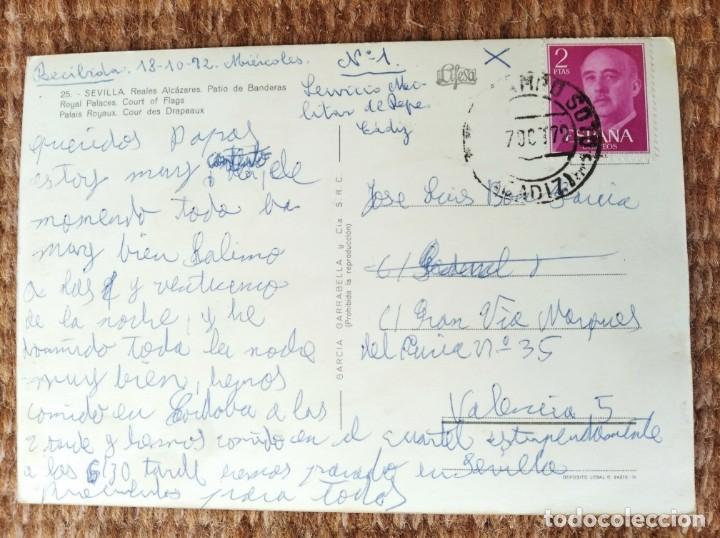 Recibida. 18-10-72. Miércoles.
Nº 1.
Servicio Mi
litar de Pepe
Cádiz
25. - SEVILLA. Reales Alcázares. Patio de Banderas
Royal Palaces. Court of Flags
Palais Royaux. Cour des Drapeaux
Lifesa
2
PTAS
ESPAÑA
CORREOS
CAMPO SOTO
7 OCT 72
CADIZ
queridos Papas
estoy muy contento
momento toda ba
muy bien Salimo
a las y veinticinco
de la noche, y he
dormido toda la noche
muy bien, hemos
comido en Cordova a las
2 tarde y hemos comido en el cuartel estupendamente
a las 6'30 tarde hemos parado en Sevilla
para todos
GARCIA GARRABELLA y Cía. S.R.C.
(Prohibida la reproducción)
Jose Luis García
C/
C/ Gran Via Marques
del Turia nº 35
Valencia 5
DEPOSITO LEGAL B.
todocoleccion
todocoleccion.net